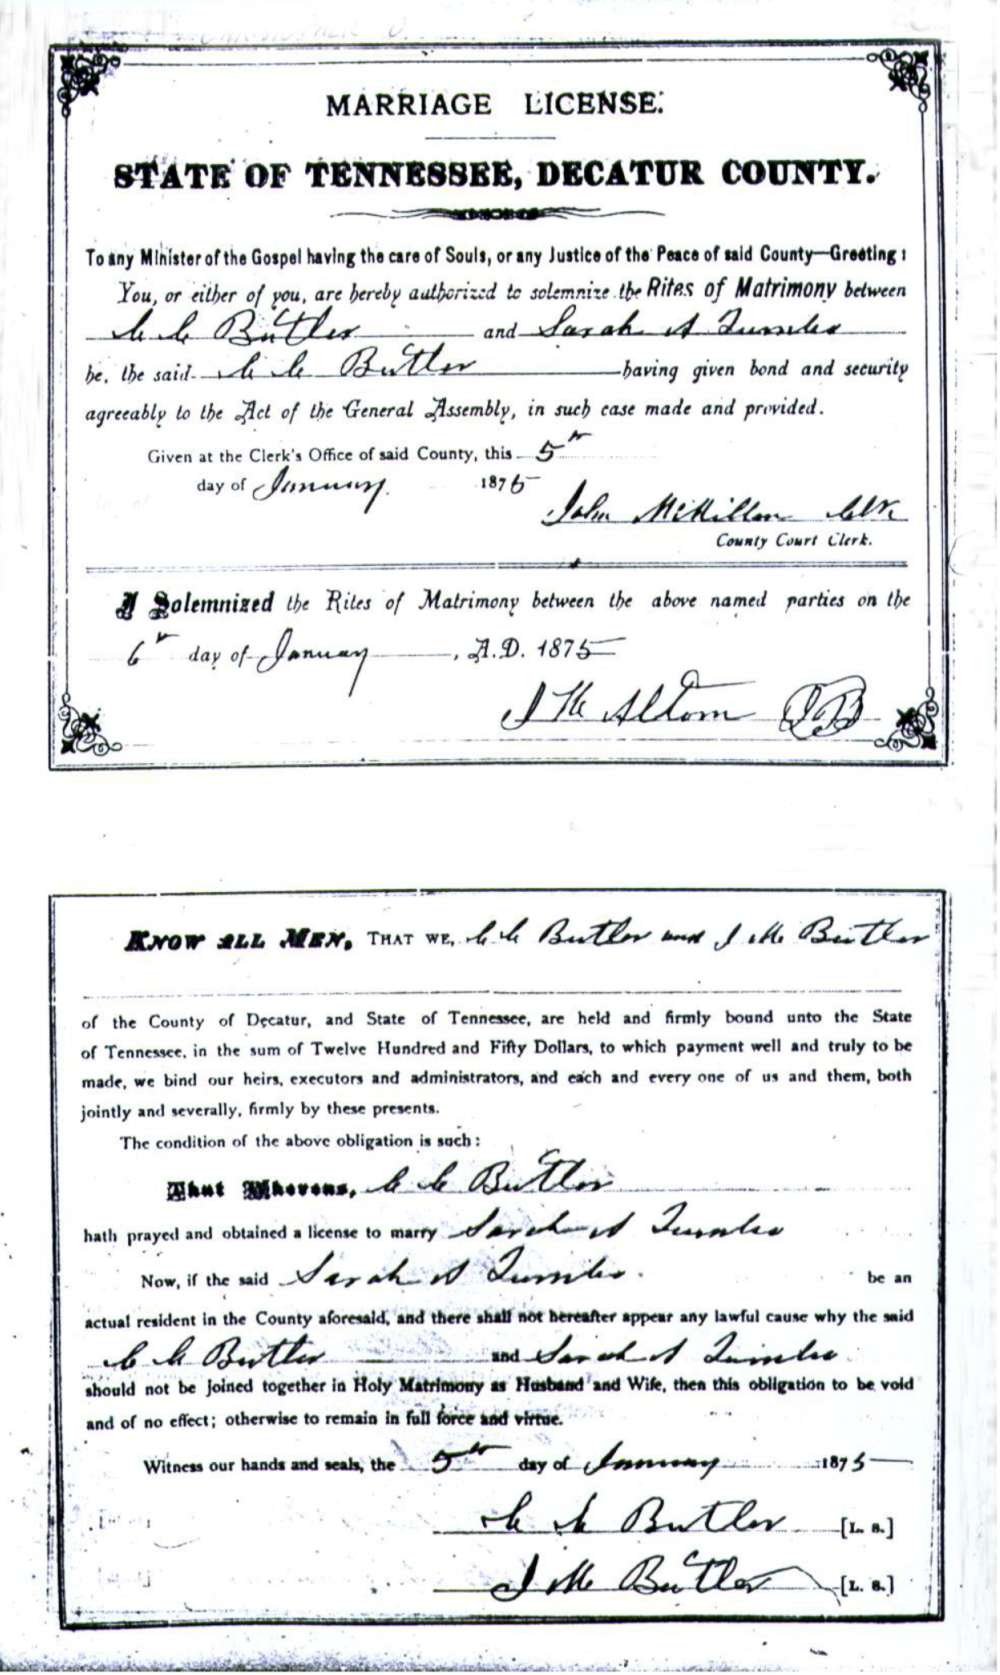 MARRIAGE LICENSE.
STATE OF TENNESSEE, DECATUR COUNTY.
To any Minister of the Gospel having the care of Souls, or any Justice of the Peace of said County—Greeting:
You, or either of you, are hereby authorized to solemnize the Rites of Matrimony between
C C Butler and Sarah A
he, the said C C Butler having given bond and security
agreeably to the Act of the General Assembly, in such case made and provided.
Given at the Clerk's Office of said County, this 5th
day of January 1875
John McMillan Clk
County Court Clerk.
I Solemnized the Rites of Matrimony between the above named parties on the
6th day of January, A.D. 1875
Altom
KNOW ALL MEN, THAT WE, C C Butler and J M Butler
of the County of Decatur, and State of Tennessee, are held and firmly bound unto the State
of Tennessee, in the sum of Twelve Hundred and Fifty Dollars, to which payment well and truly to be
made, we bind our heirs, executors and administrators, and each and every one of us and them, both
jointly and severally, firmly by these presents.
The condition of the above obligation is such:
That Whereas, C C Butler
hath prayed and obtained a license to marry Sarah A
Now, if the said Sarah A be an
actual resident in the County aforesaid, and there shall not hereafter appear any lawful cause why the said
C C Butler and Sarah A
should not be joined together in Holy Matrimony as Husband and Wife, then this obligation to be void
and of no effect; otherwise to remain in full force and virtue.
Witness our hands and seals, the 5th day of January 1875
C C Butler [L. S.]
J M Butler [L. S.]